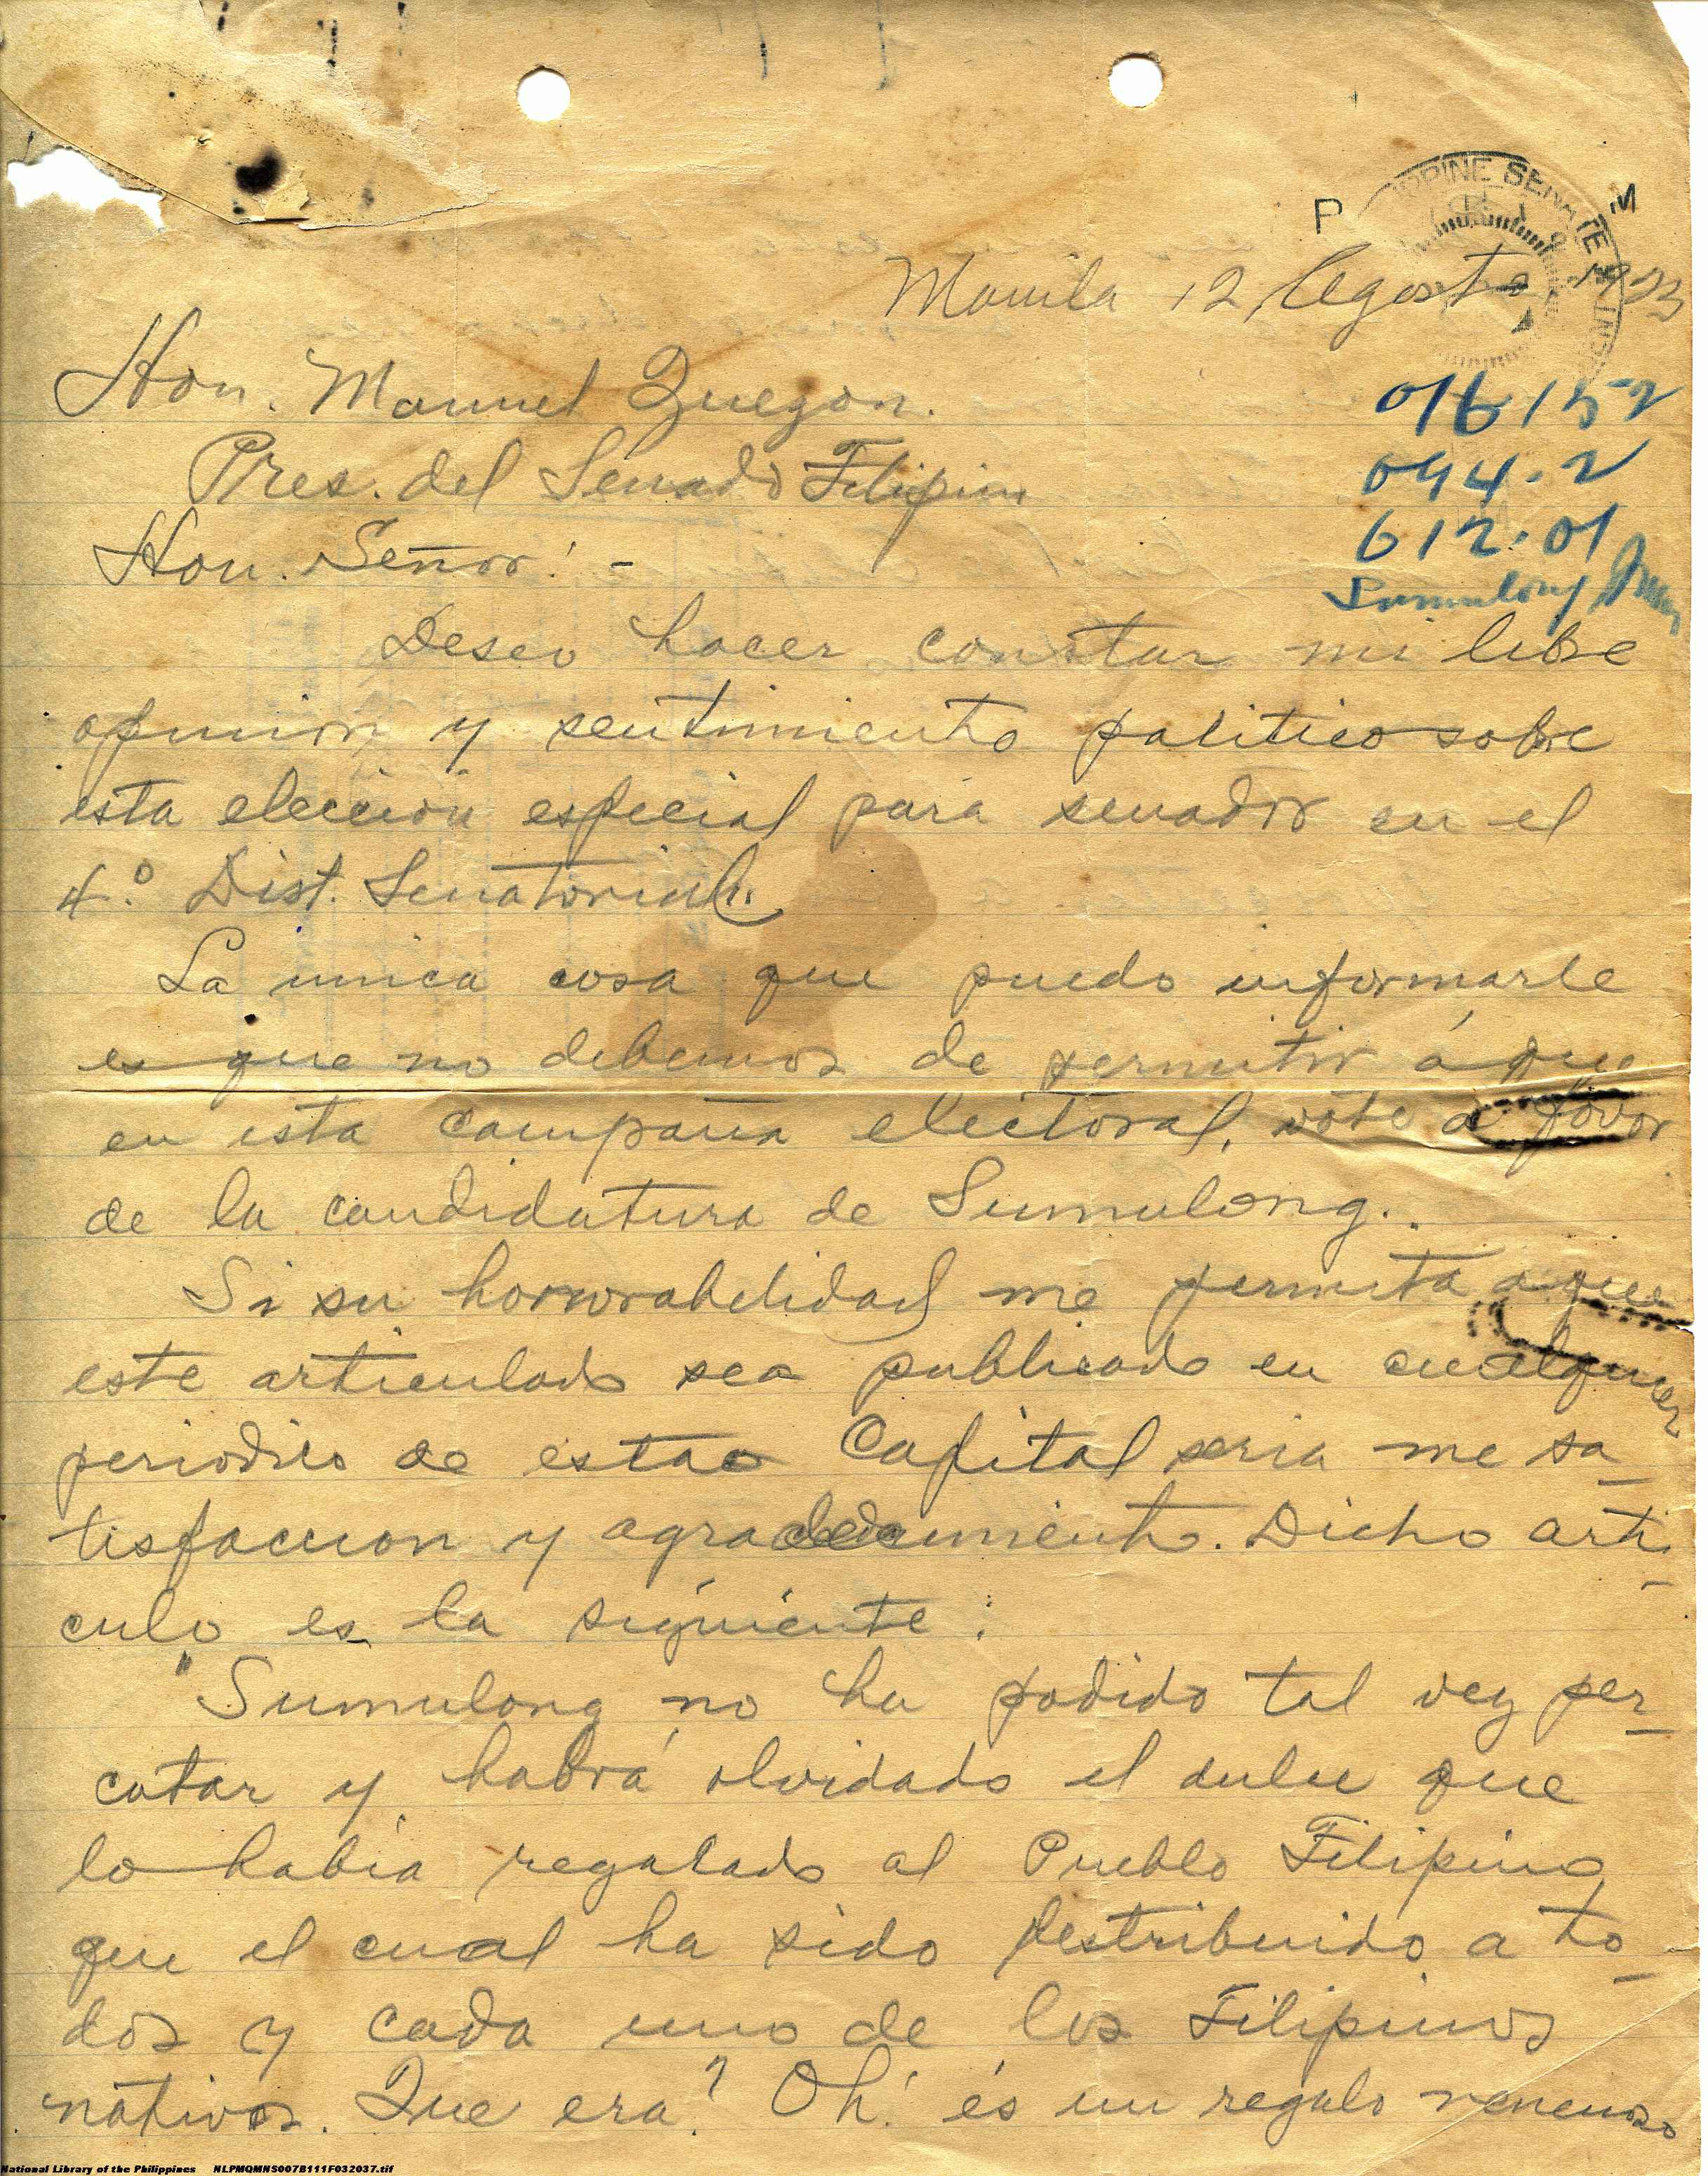 P M
PHILIPPINE SENATE
Manila 12, Agosto 1923
Hon. Manuel Quezon.
Pres. del Senado Filipino
Hon. Señor: -
016152
094.2
612.01
Sumulong Juan
Deseo hacer constar mi libre
opinion y sentimiento politico sobre
esta eleccion especial para senador en el
4.º Dist. Senatorial.
La unica cosa que puedo informarle
es que no debemos de permitir á que
en esta campaña electoral, vote a favor
de la candidatura de Sumulong..
Si su honorabilidad me permita a que
este articulado sea publicado en cualquier
periodico de esta Capital seria me sa-
tisfaccion y agradecimiento. Dicho arti-
culo es la siguiente:
"Sumulong no ha podido tal vez per-
catar y habrá olvidado el dulce que
lo habia regalado al Pueblo Filipino
que el cual ha sido destribuido a to-
dos y cada uno de los Filipinos
nativos. Que era? Oh! és un regalo venenoso
National Library of the Philippines NLPMQMNS007B111F032037.tif